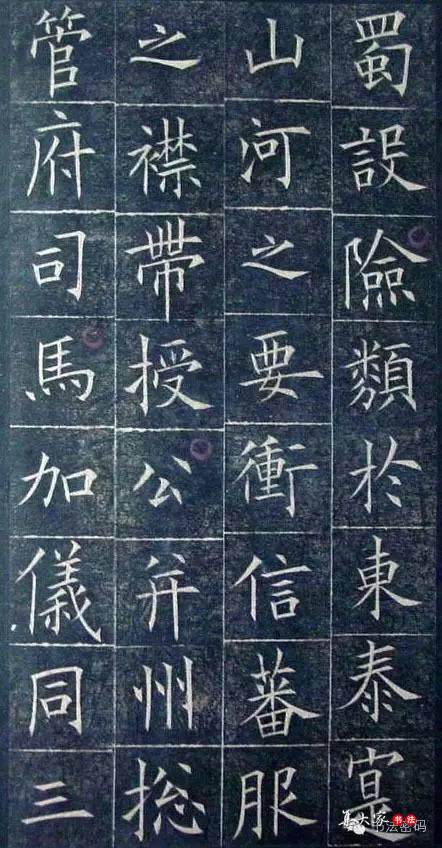 蜀設險類於東泰寔
山河之要衝信蕃服
之襟帶授公并州揔
管府司馬加儀同三
集大家 书法
书法密码